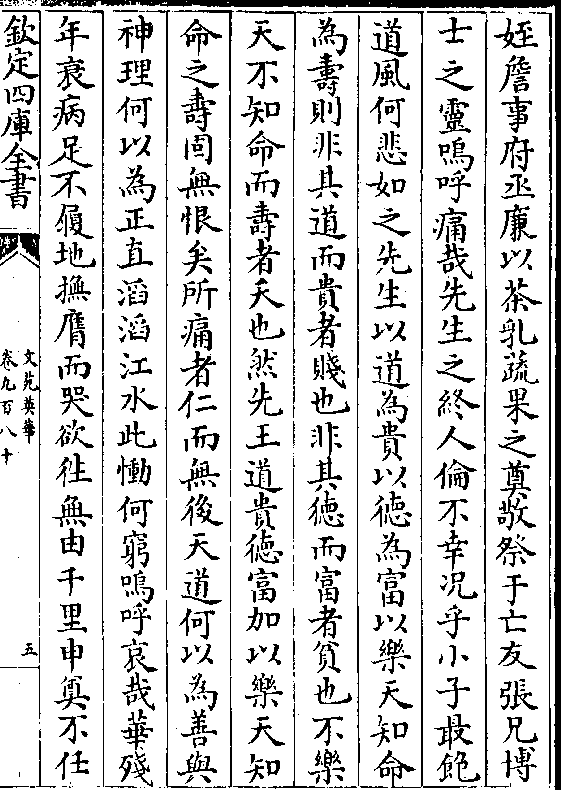 姪詹事府丞㢘以茶乳蔬果之奠敬祭于亡友張兄博
士之靈嗚呼痛哉先生之終人倫不幸况乎小子最飽
道風何悲如之先生以道為貴以徳為富以樂天知命
為壽則非其道而貴者賤也非其徳而富者貧也不樂
天不知命而壽者夭也然先王道貴徳富加以樂天知
命之壽固無恨矣所痛者仁而無後天道何以為善與
神理何以為正直滔滔江水此慟何窮嗚呼哀哉華殘
年衰病足不履地撫膺而哭欲徃無由千里申奠不任
欽定四庫全書
文苑英華
卷九百八十
五